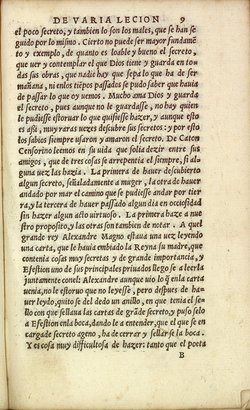 DE VARIA LECION 9
el poco secreto, y tambien lo son los males, que se han se
guido por lo mismo. Cierto no puede ser mayor fundamẽ
to y exemplo, de quanto es loable y bueno el secreto,
que uer y contemplar el que Dios tiene y guarda en to
das sus obras, que nadie hay que sepa lo que ha de ser
mañana, ni en los tiẽpos passados se pudo saber que hauia
de passar lo que oy uemos. Mucho ama Dios y guarda el
secreto, pues aunque no le guardasse, no hay quien
le pudiesse estoruar lo que quisiesse hazer, y aunque esto
es assi, muy raras vezes descubre sus secretos: y por esto
los sabios siempre usaron y amaron el secreto. De Caton
Censorino leemos en su uida que solia dezir entre sus
amigos, que de tres cosas se arrepentia el siempre, si al
guna vez las hazia. La primera de hauer descubierto
algun secreto, señaladamente a muger, la otra de hauer
andado por mar el camino que se pudiesse andar por tier
ra, y la tercera de hauer passado algun dia en occiosidad
sin hazer algun acto uirtuoso. La primera haze a nue
stro proposito, y las otras son tambien de notar. A quel
grande rey Alexandre Magno estaua una uez leyendo
una carta, que le hauia embiado la Reyna su madre, que
contenia cosas muy secretas y de grande importancia, y
Efestion uno de sus principales priuados llego se a leerla
juntamente conel: Alexandre aunque uio lo q̃ en la carta
uenia, no le estoruo que no leyesse, pero despues de ha-
uer leydo, quito se del dedo un anillo, en que tenia el se-
llo con que sellaua las cartas de grãde secreto, y puso selo
a Efestion en la boca, dando le a entender, que el que se en
carga de secreto ageno, ha de cerrar y sellar se la boca.
Y es cosa muy difficultosa de hazer: tanto que el poeta
B